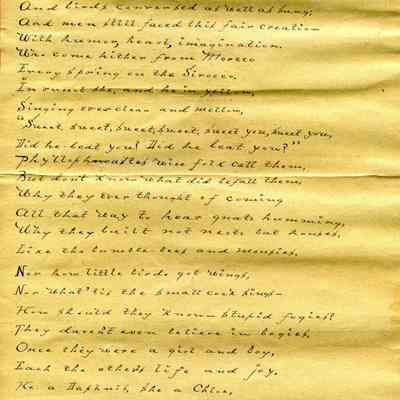 And birds conversed as well as sung;
And men still faced this fair creation
With humor, heart, imagination.
Who come hither from Morocco
Every spring on the Sirocco.
In russet she, and he in yellow,
Singing ever clear and mellow,
"Sweet, sweet, sweet, sweet, sweet you, sweet you,
Did he beat you? Did he beat you?"
Phyllopneustes wise folk call them,
But don't know what did befall them,
Why they ever thought of coming
All that way to hear gnats humming,
Why they built not nests but houses,
Like the bumble bees and mousies.
Nor how little birds got wings,
Nor what 'tis the small cock sings—
How should they know stupid fogies?
They daren't even believe in bogies.
Once they were a girl and boy,
Each the others life and joy.
He a Daphnis, she a Chloe,